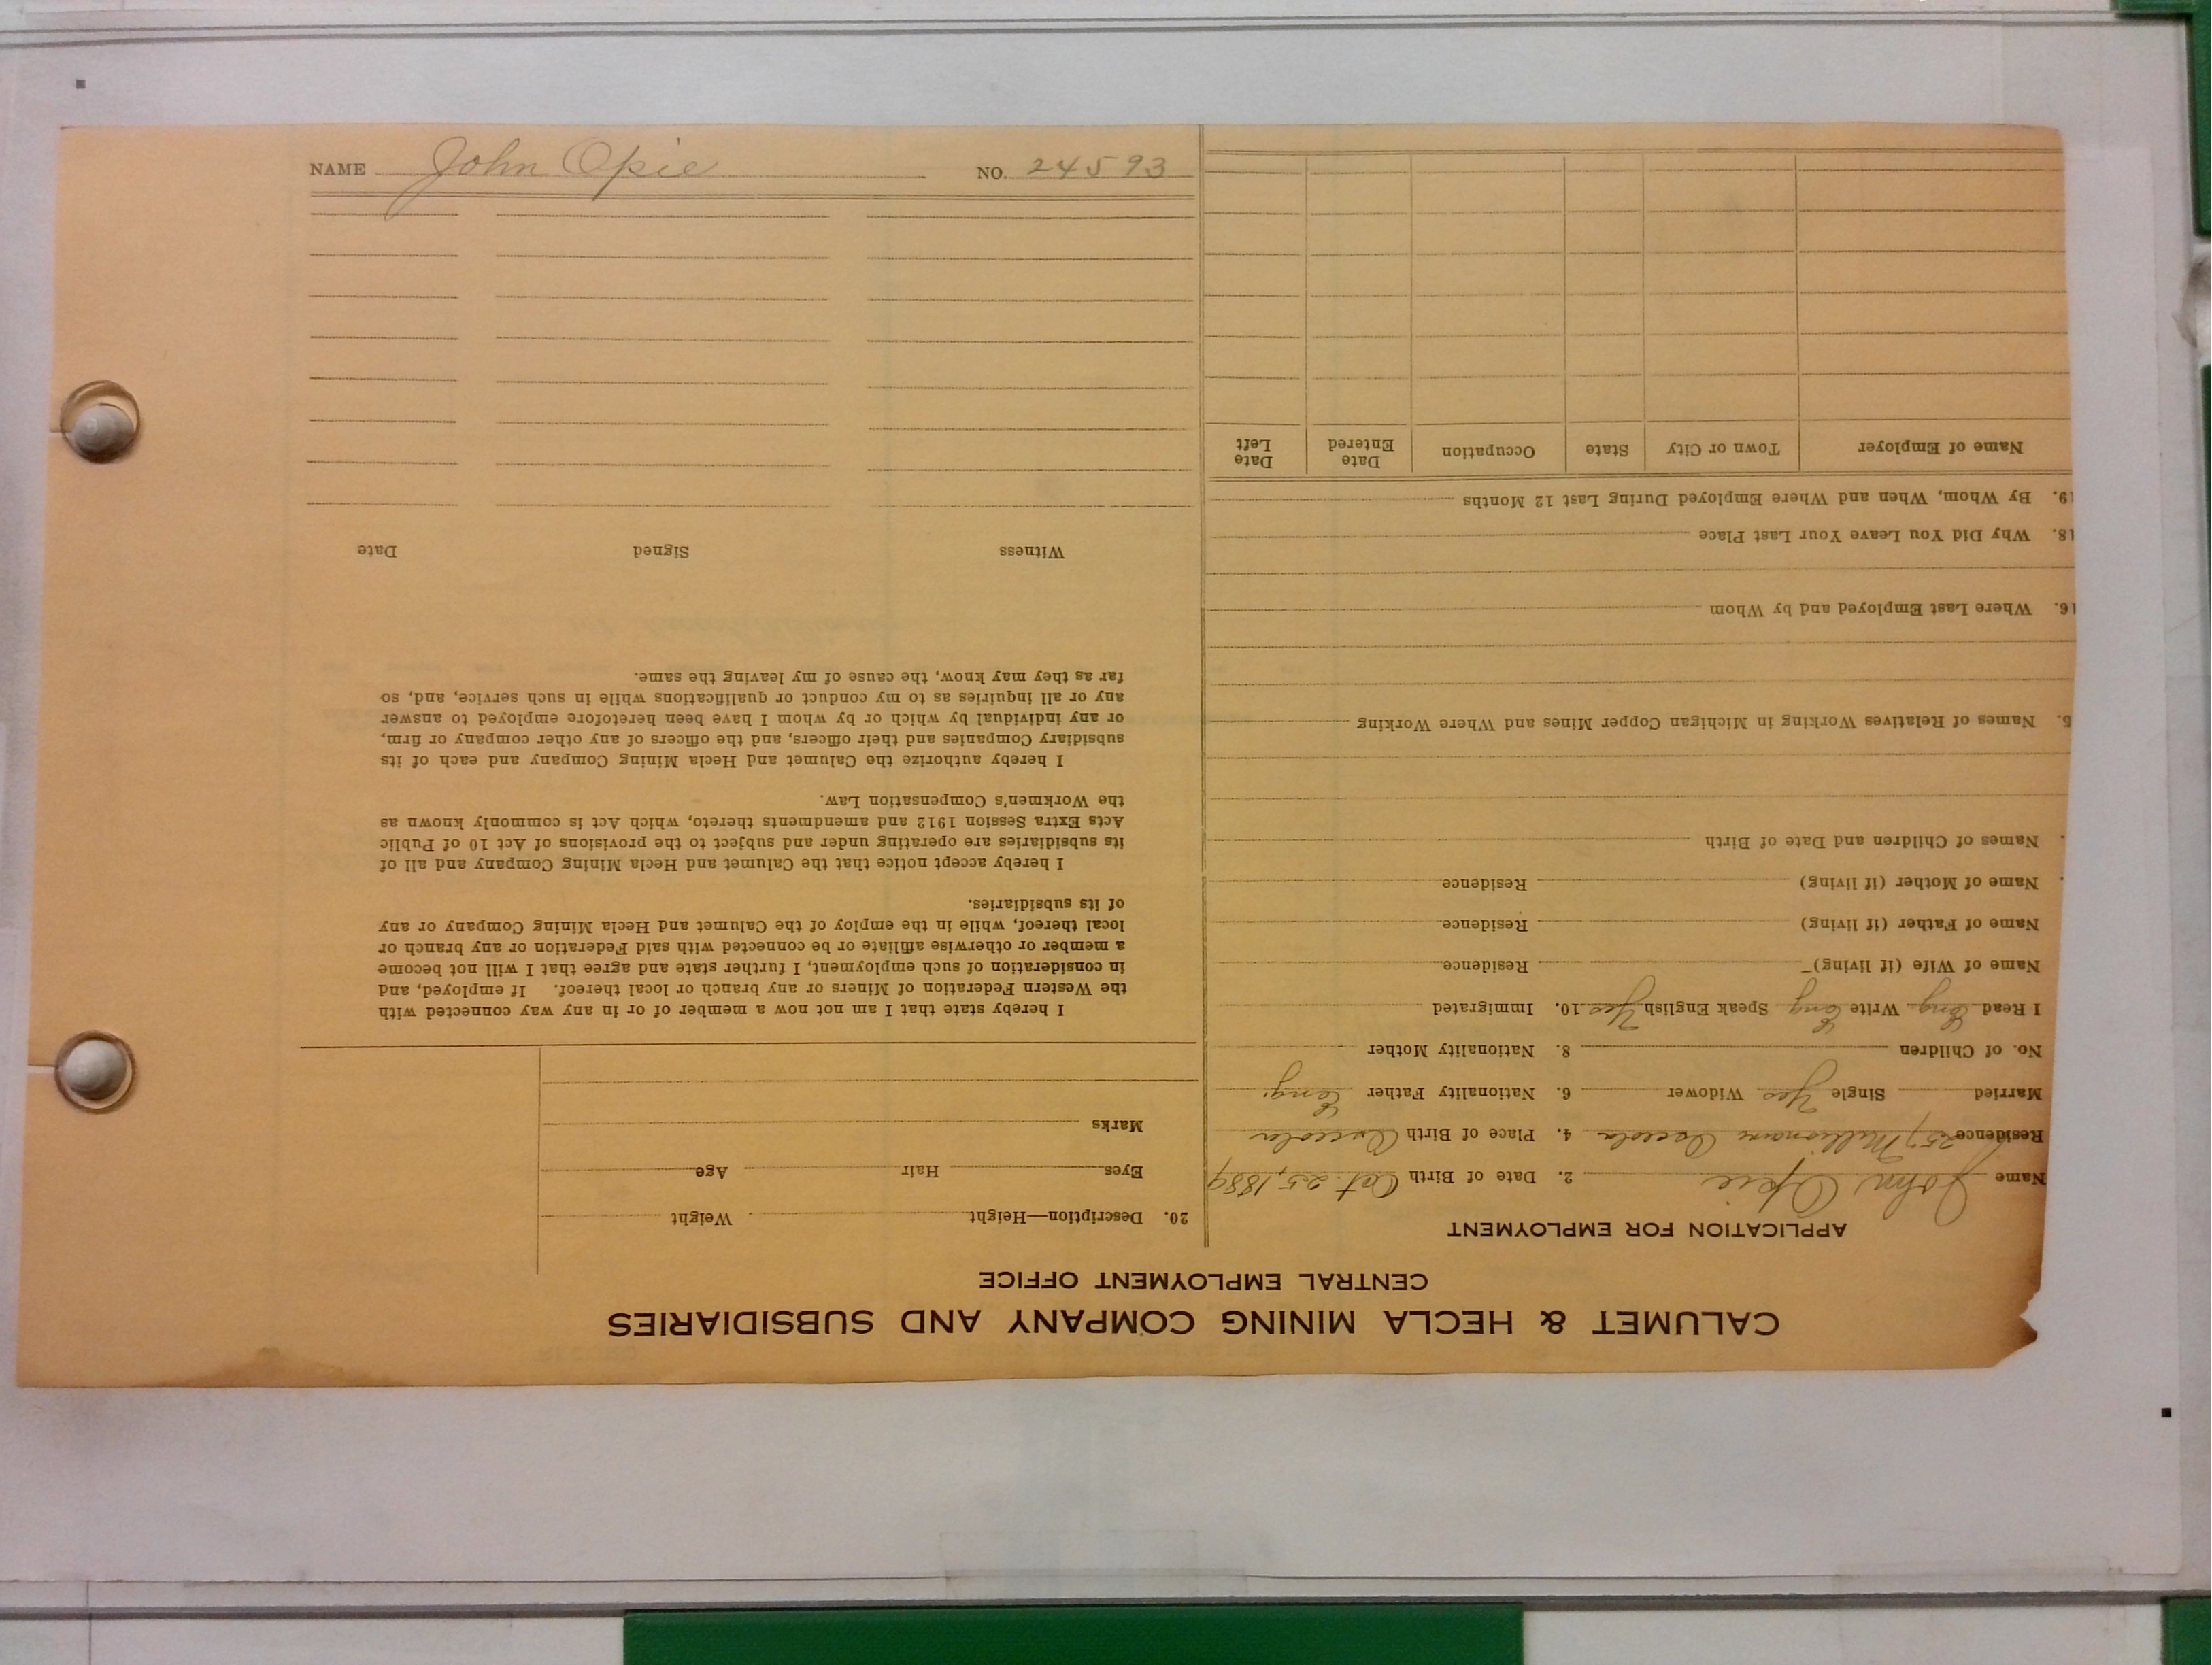 CALUMET & HECLA MINING COMPANY AND SUBSIDIARIES
CENTRAL EMPLOYMENT OFFICE
APPLICATION FOR EMPLOYMENT
Name John Opie 2. Date of Birth Oct. 25, 1889
Residence 257 Millionaire Osceola 4. Place of Birth Osceola
Married Single Yes Widower 6. Nationality Father Eng.
No. of Children 8. Nationality Mother
I Read Eng. Write Eng Speak English Yes 10. Immigrated
Name of Wife (if living) Residence
Name of Father (if living) Residence
Name of Mother (if living) Residence
Names of Children and Date of Birth
5. Names of Relatives Working in Michigan Copper Mines and Where Working
16. Where Last Employed and by Whom
18. Why Did You Leave Your Last Place
19. By Whom, When and Where Employed During Last 12 Months
Name of Employer Town or City State Occupation Date Entered Date Left
20. Description—Height Weight
Eyes Hair Age
Marks
I hereby state that I am not now a member of or in any way connected with
the Western Federation of Miners or any branch or local thereof. If employed, and
in consideration of such employment, I further state and agree that I will not become
a member or otherwise affiliate or be connected with said Federation or any branch or
local thereof, while in the employ of the Calumet and Hecla Mining Company or any
of its subsidiaries.
I hereby accept notice that the Calumet and Hecla Mining Company and all of
its subsidiaries are operating under and subject to the provisions of Act 10 of Public
Acts Extra Session 1912 and amendments thereto, which Act is commonly known as
the Workmen's Compensation Law.
I hereby authorize the Calumet and Hecla Mining Company and each of its
subsidiary Companies and their officers, and the officers of any other company or firm,
or any individual by which or by whom I have been heretofore employed to answer
any or all inquiries as to my conduct or qualifications while in such service, and, so
far as they may know, the cause of my leaving the same.
Witness Signed Date
NAME John Opie NO. 24593